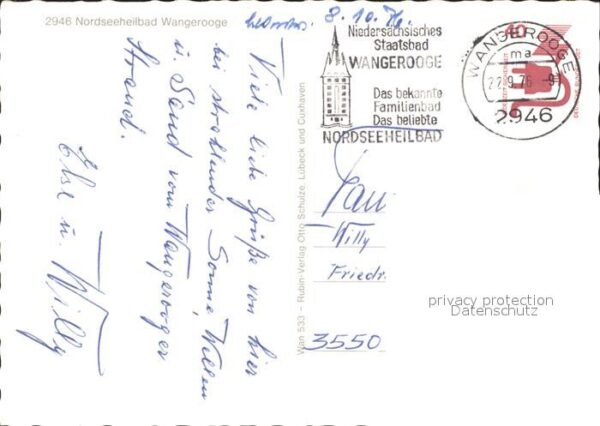 2946 Nordseeheilbad Wangerooge
8.10.76.
Niedersächsisches
Staatsbad
WANGEROOGE
Das bekannte
Familienbad
Das beliebte
NORDSEEHEILBAD
WANGEROOGE
ma
22.9.76-9
2946
DEUTSCHE BUNDESPOST
Viele liebe Grüße von hier
bei strahlender Sonne, Wellen
u. Sand vom Wangerooger
Strand.
Else u. Willy
Wan 533 – Rubin-Verlag Otto Schulze, Lübeck und Cuxhaven
Fam.
Willy
Friedr.
3550
privacy protection
Datenschutz